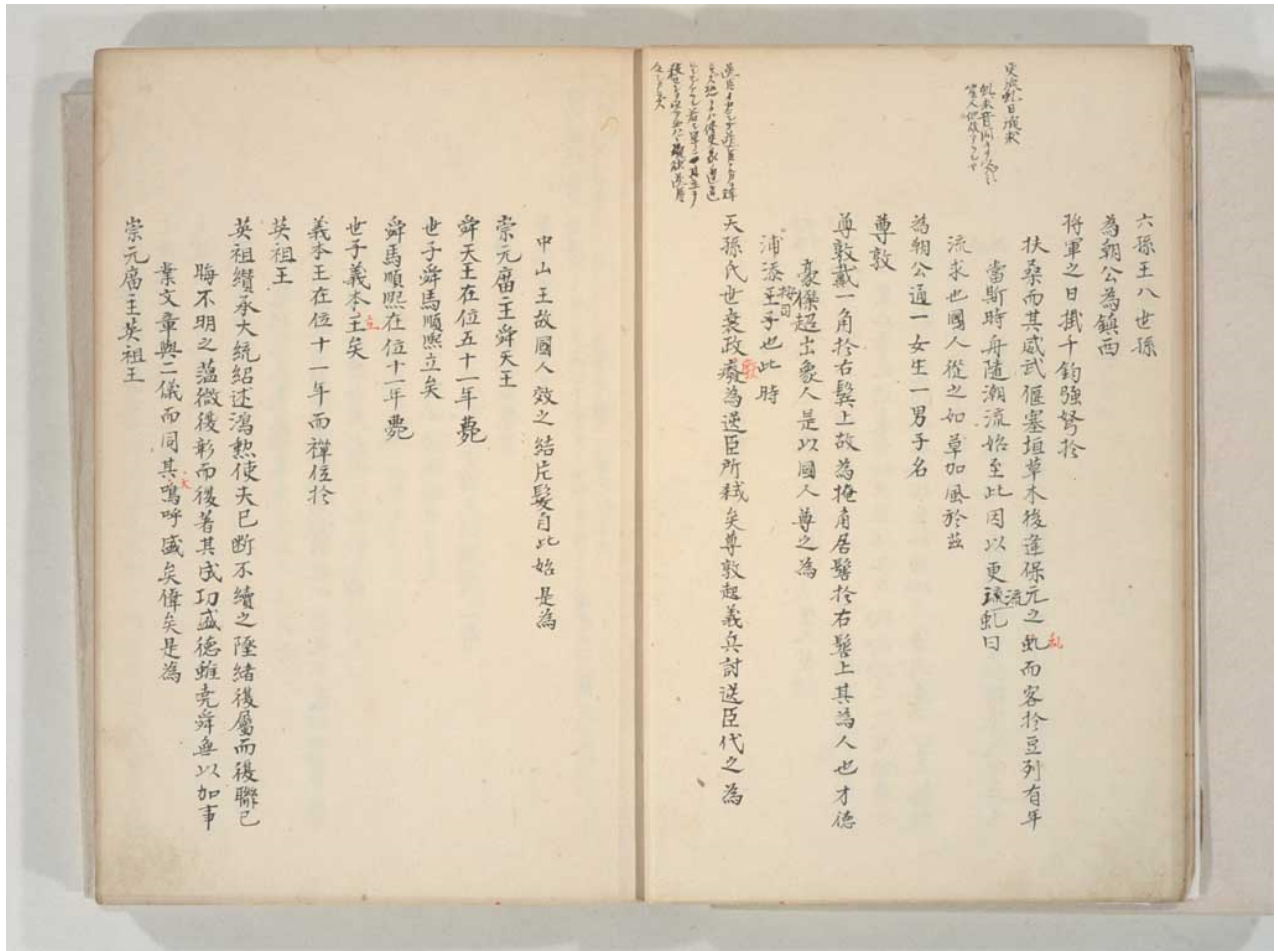 六孫王八世孫
為朝公為鎮西
将軍之日掛千鈞強弩於
扶桑而其威武偃塞垣草木後逢保元之乱而客於豆列有年
乱
當斯時舟隨潮流始至此因以更流虬曰
流求也國人從之如草加風於茲
為朝公通一女生一男子名
尊敦
尊敦戴一角於右鬂上故為掩角居髻於右鬂上其為人也才德
豪傑超出衆人是以國人尊之為
浦添王子也此時
按司
天孫氏世衰政廢為逆臣所弑矣尊敦起義兵討逆臣代之為
中山王故國人效之結片髮自此始是為
崇元廟主舜天王
舜天王在位五十一年薨
世子舜馬順熙立矣
舜馬順熙在位十一年薨
世子義本王矣
立
義本王在位十一年而禪位於
英祖王
英祖纘承大統紹述鴻勲使夫已断不續之墜緒復屬而復聯已
晦不明之蘊微復彰而復著其成功盛德雖堯舜無以加事
業文章與二儀而同其鳴呼盛矣偉矣是為
大
崇元廟主英祖王